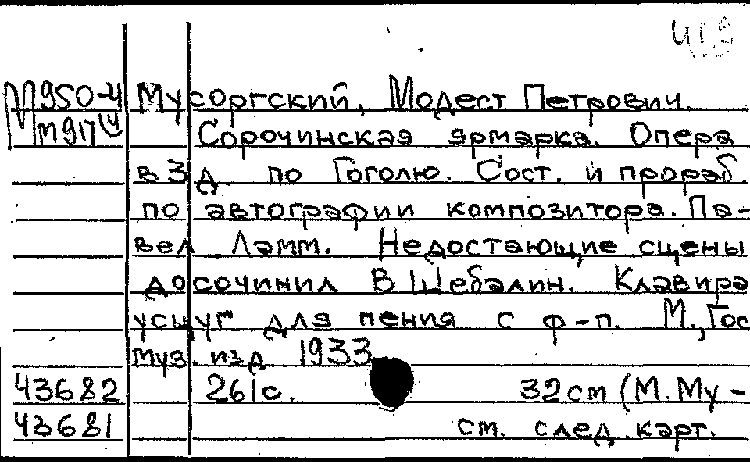 М950-4 Мусоргский, Модест Петрович.
М917 Сорочинская ярмарка. Опера
в 3 д. по Гоголю. Сост. и прораб.
по автографии композитора. Па-
вел Ламм. Недостающие сцены
досочинил В Шебалин. Клавира
усцуг для пения с ф-п. М., Гос
муз. изд 1933
43682 261с. 32cm (М. Му-
43681 см. след. карт.